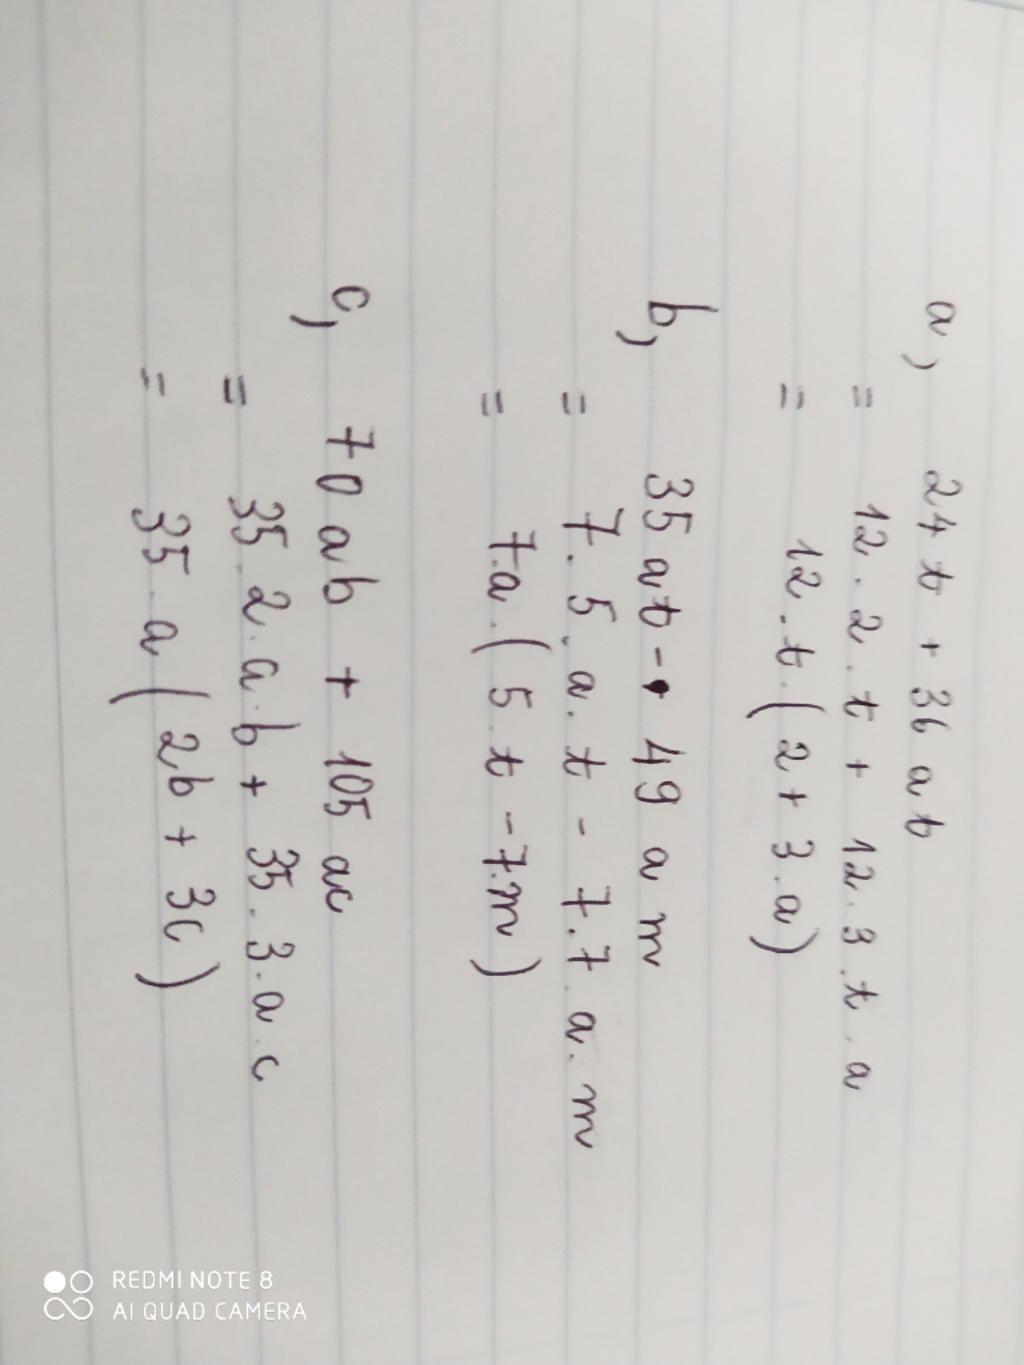 a, 24 t + 36 a t
= 12 . 2 . t + 12 . 3 . t . a
= 12 . t . ( 2 + 3 . a )
b, 35 at - 49 a m
= 7 . 5 . a . t - 7 . 7 . a . m
= 7.a . ( 5 . t - 7.m )
c, 70 a b + 105 ac
= 35 . 2 . a . b + 35 . 3 . a . c
= 35 . a ( 2b + 3c )
REDMI NOTE 8
AI QUAD CAMERA